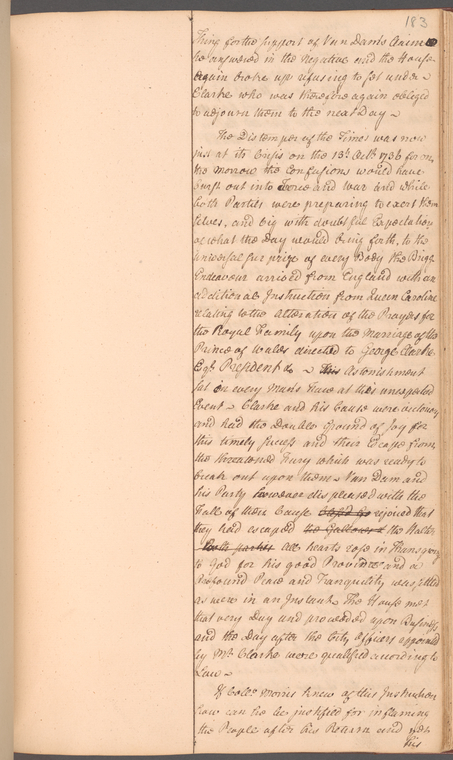 183
thing for the support of Van Dam's Claim
he answered in the Negative and the House
again broke up refusing to set under
Clarke who was therefore again obliged
to adjourn them to the next Day
The Distemper of the Times was now
just at its Crisis on the 13th Octbr 1736 for on
the morrow the Confusions would have
burst out into Force and War and while
both Parties were preparing to exert them
selves, and big with doubtful Expectation
of what the Day would bring forth, to the
universal surprize of every Body the Brigt
Endeavour arrived from England with an
additional Instruction from Queen Caroline
relating to the alteration of the Prayers for
the Royal Family upon the Marriage of the
Prince of Wales directed to George Clarke
Esqr President &c This Astonishment
sat on every Man's Face at this unexpected
Event Clarke and his Cause were victorious
and had the Double ground of Joy for
this timely success and their Escape from
the threatened Fury which was ready to
break out upon them Van Dam and
his Party however displeased with the
Fall of their Cause rejoiced that
they had escaped the Gallows & the Halter
Both parties All hearts rose in Thanksgiving
to God for his good Providence and a
Profound Peace and Tranquility was settled
as were in an Instant The House met
that very Day and proceeded upon Business
and the Day after the City officers appointed
by Mr Clarke were qualified according to
Law
If Colo Morris knew of this Instruction
how can he be justified for inflaming
the People after his Return and
his